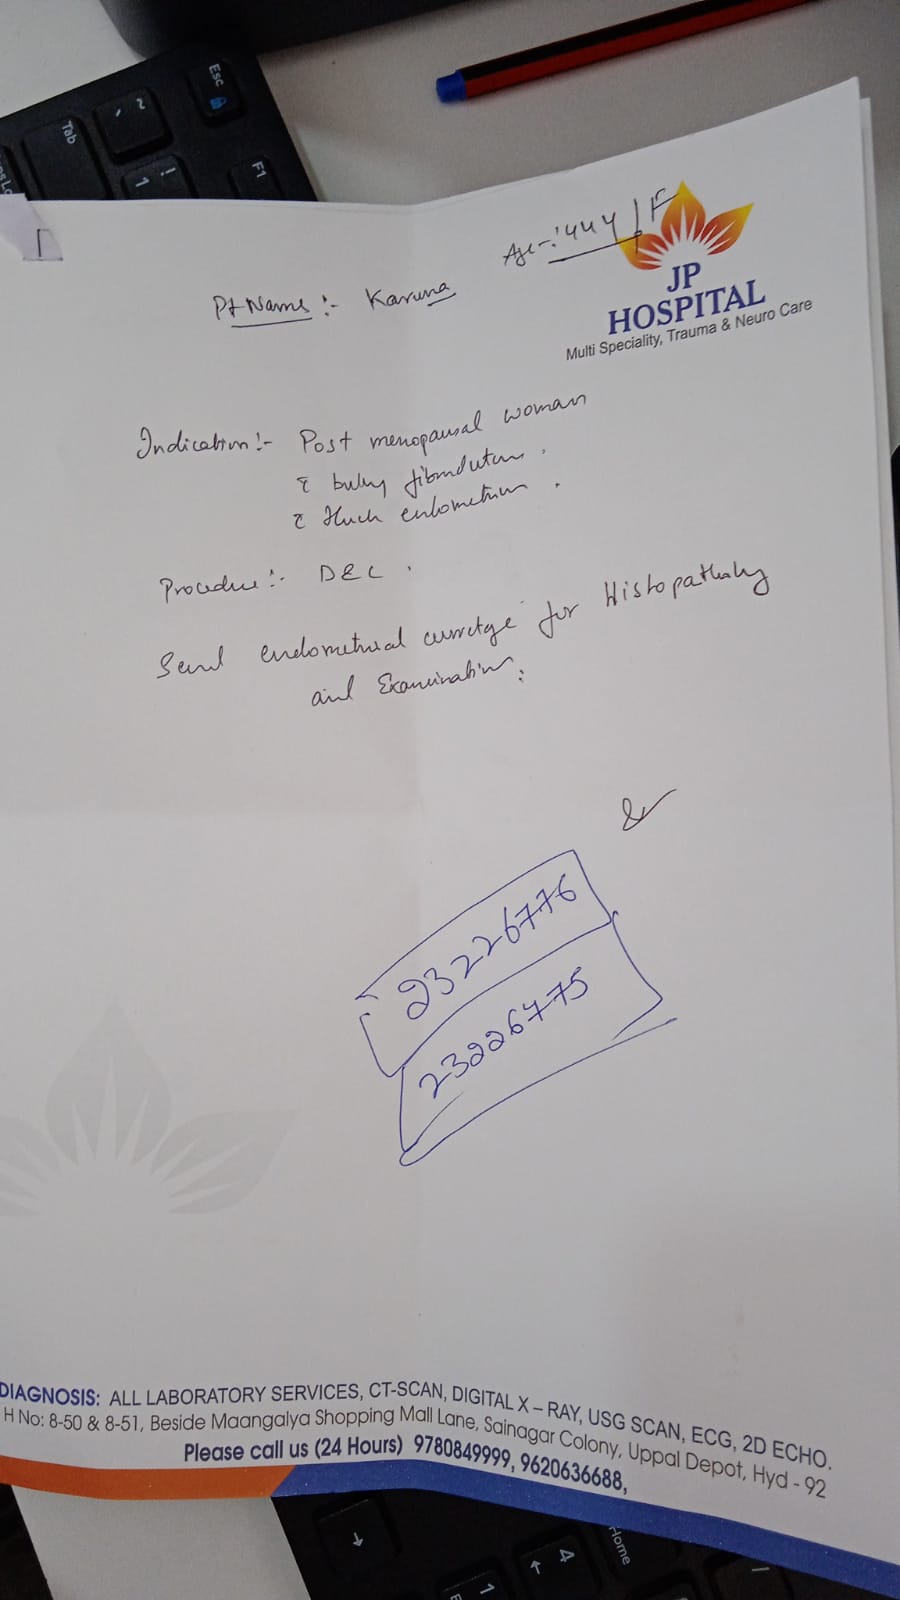 Age-:'44Y/F
JP
HOSPITAL
Multi Speciality, Trauma & Neuro Care
Pt Name :- Karuna
Indication:- Post menopausal woman
c̄ bulky fibroid uterus.
c̄ thick endometrium.
Procedure:- D&C.
Send endometrial curretge for Histopathology
and Examination.
23226776
23226775
DIAGNOSIS: ALL LABORATORY SERVICES, CT-SCAN, DIGITAL X – RAY, USG SCAN, ECG, 2D ECHO.
H No: 8-50 & 8-51, Beside Maangalya Shopping Mall Lane, Sainagar Colony, Uppal Depot, Hyd - 92
Please call us (24 Hours) 9780849999, 9620636688,
Esc
Tab
F1
~
!
1
Home
4
1